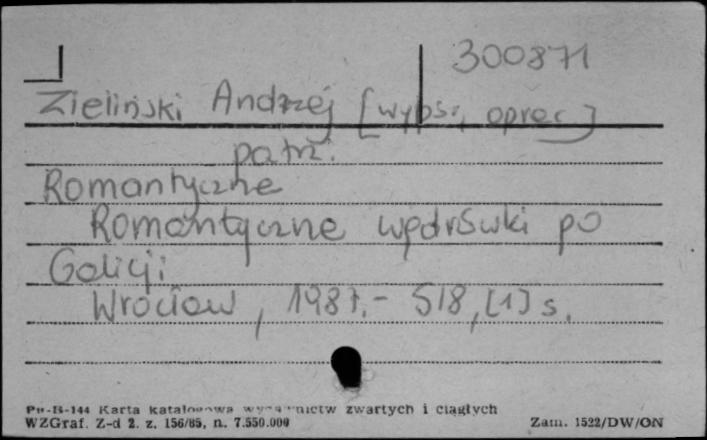 300871
Zieliński Andrzej [wybór, oprac.]
patrz.
Romantyczne
Romantyczne wędrówki po
Galicji
Wrocław, 1987.- 518, [1] s.
Pu-B-144 Karta katalogowa wydawnictw zwartych i ciągłych
WZGraf. Z-d 2. z. 156/85, n. 7.550.000 Zam. 1522/DW/ON